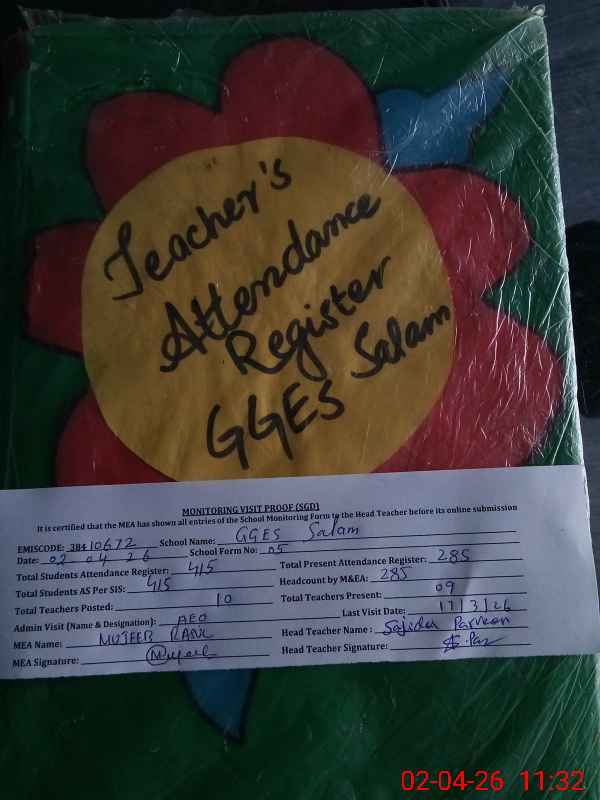 Teacher's
Attendance
Register
GGES Salam
MONITORING VISIT PROOF (SGD)
It is certified that the MEA has shown all entries of the School Monitoring Form to the Head Teacher before its online submission
EMISCODE: 38410672 School Name: GGES Salam
Date: 02 04 26 School Form No: 05
Total Students Attendance Register: 415 Total Present Attendance Register: 285
Total Students AS Per SIS: 415 Headcount by M&EA: 285
Total Teachers Posted: 10 Total Teachers Present: 09
Admin Visit (Name & Designation): AEO Last Visit Date: 17/3/26
MEA Name: MUJEEB Head Teacher Name: Sajida Parveen
MEA Signature: Head Teacher Signature:
02-04-26 11:32